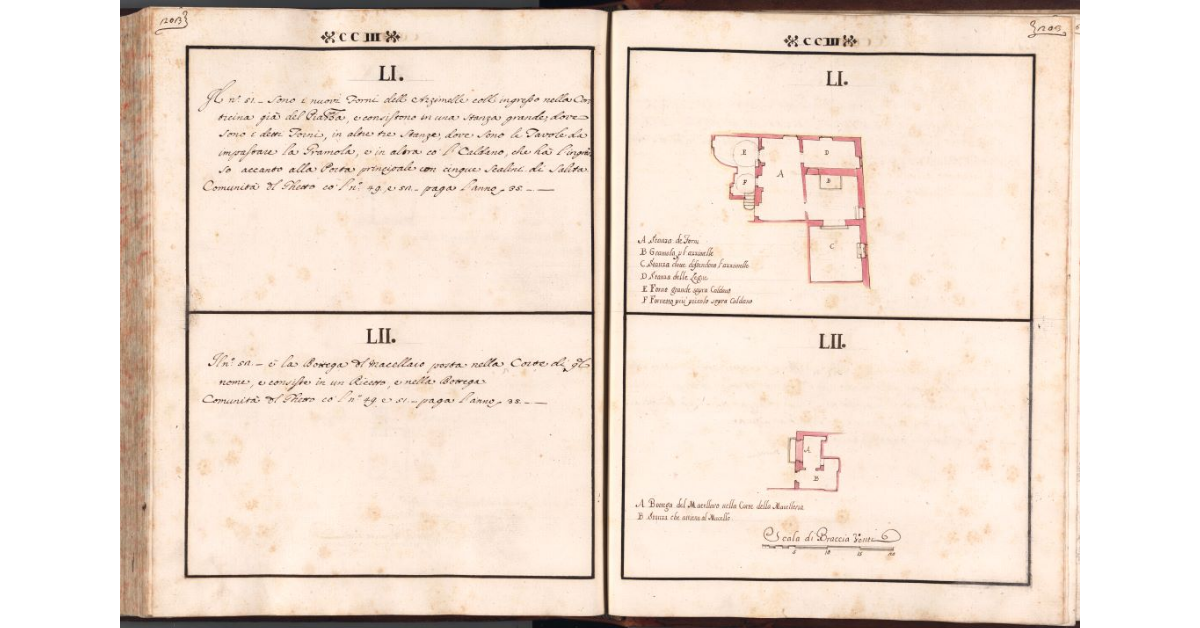 1203
CCIII
LI.
Il nº 51 - Sono i nuovi Forni dell Azzimelle coll ingresso nella Cor
ticina già del Piazza, e consistono in una Stanza grande, dove
sono i detti Forni, in altre tre Stanze, dove sono le Tavole da
impastare la Gramola, e in altra co' l Caldano, che hà l'ingres
so accanto alla Porta principale con cinque Scalini di Salita
Comunità del Ghetto co' l nº 49. e 52. paga l'anno - 38. - —
LII.
Il nº 52. - è la Bottega del Macellaio posta nella Corte di
nome, e consiste in un Ricetto, e nella Bottega
Comunità del Ghetto co' l nº 49. e 51. - paga l'anno - 38. - —
1203
CCIII
LI.
E
D
A
F
B
C
A Stanza de Forni
B Gramola p l'azzimelle
C Stanza dove distendono l'azzimelle
D Stanza delle Legne
E Forno grande sopra Caldano
F Fornetto più piccolo sopra Caldano
LII.
A
B
A Bottega del Macellaro nella Corte della Macelleria
B Stanza che attiene al Macello
Scala di Braccia Venti
5 10 15 20